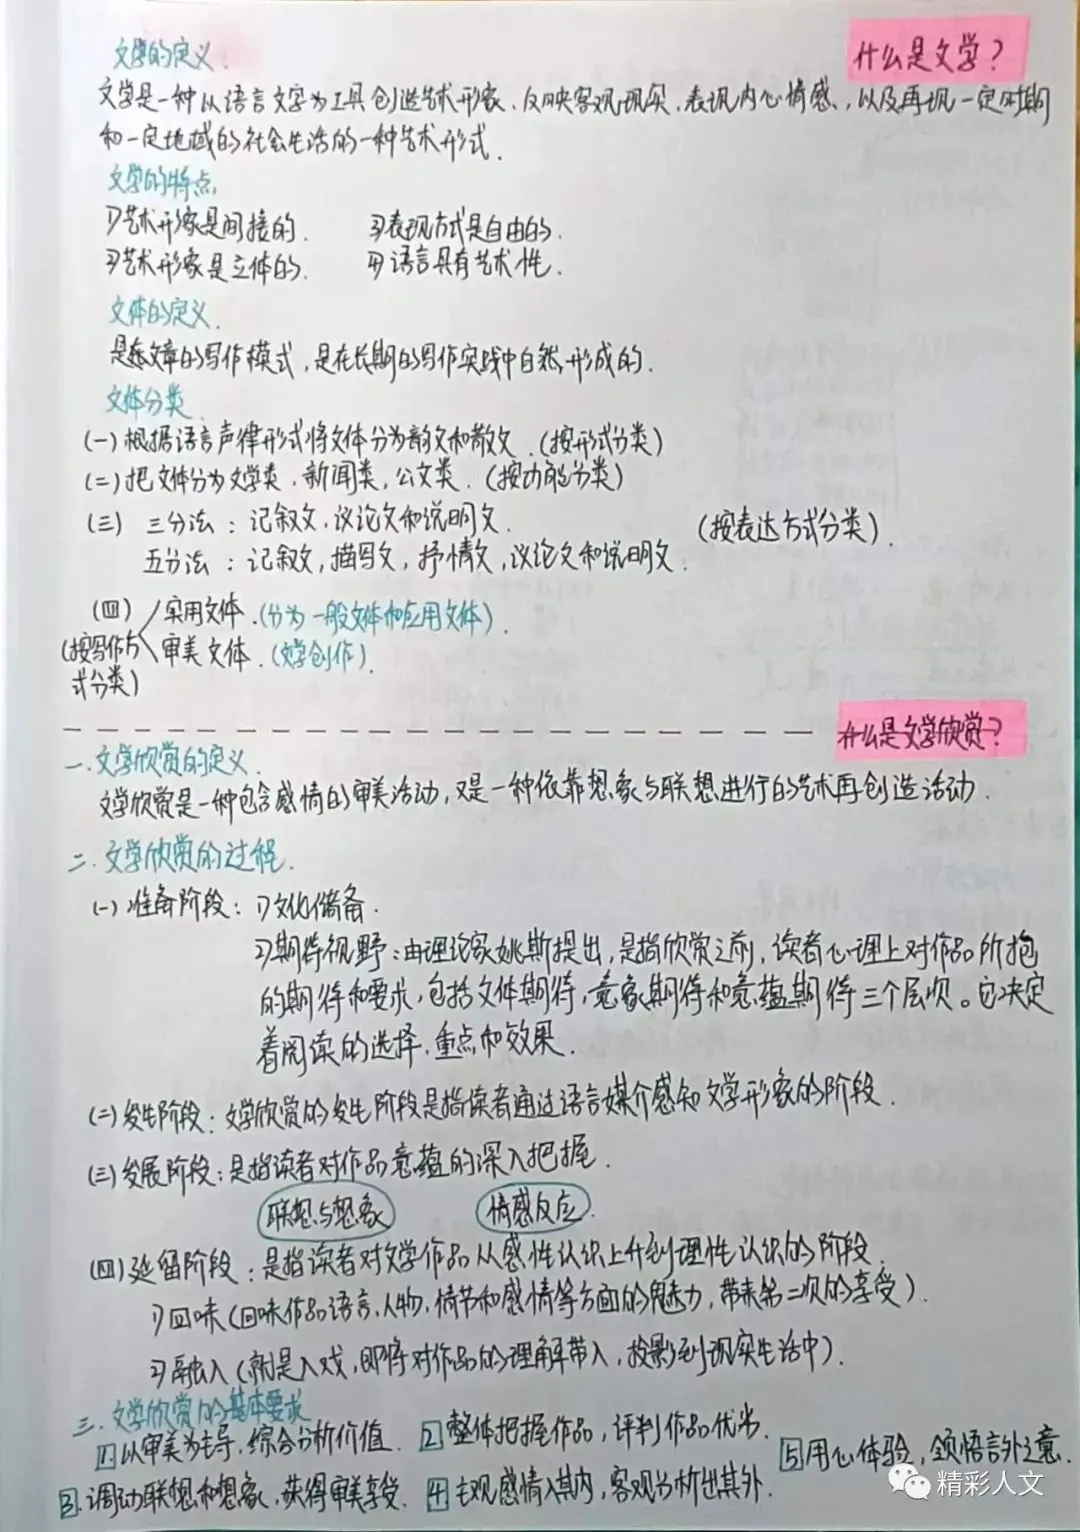 什么是文学？
文学的定义：
文学是一种以语言文字为工具创造艺术形象、反映客观现实、表现内心情感、以及再现一定时期
和一定地域的社会生活的一种艺术形式.
文学的特点：
1)艺术形象是间接的. 3)表现方式是自由的.
2)艺术形象是立体的. 4)语言具有艺术性.
文体的定义.
是文章的写作模式，是在长期的写作实践中自然形成的.
文体分类
(一)根据语言声律形式将文体分为韵文和散文.(按形式分类)
(二)把文体分为文学类、新闻类，公文类.(按功能分类)
(三) 三分法：记叙文，议论文和说明文. (按表达方式分类).
五分法：记叙文，描写文，抒情文，议论文和说明文.
(四) 实用文体.(分为一般文体和应用文体).
(按写作方 审美文体.(文学创作).
式分类)
什么是文学欣赏？
一.文学欣赏的定义.
文学欣赏是一种包含感情的审美活动，又是一种依靠想象与联想进行的艺术再创造活动.
二.文学欣赏的过程.
(一)准备阶段：1)文化储备.
2)期待视野：由理论家姚斯提出，是指欣赏之前，读者心理上对作品所抱
的期待和要求，包括文体期待，意象期待和意蕴期待三个层次。它决定
着阅读的选择、重点和效果.
(二)发生阶段：文学欣赏的发生阶段是指读者通过语言媒介感知文学形象的阶段.
(三)发展阶段：是指读者对作品意蕴的深入把握.
联想与想象 情感反应.
(四)延留阶段：是指读者对文学作品从感性认识上升到理性认识的阶段.
1)回味(回味作品语言，人物，情节和感情等方面的魅力，带来第二次的享受).
2)融入(就是入戏，即将对作品的理解带入，投影到现实生活中).
三.文学欣赏的基本要求
1.以审美为主导，综合分析价值. 2 整体把握作品，评判作品优劣.
3.调动联想和想象，获得审美享受. 4 主观感情入其内，客观分析出其外.
5 用心体验，领悟言外之意.
精彩人文